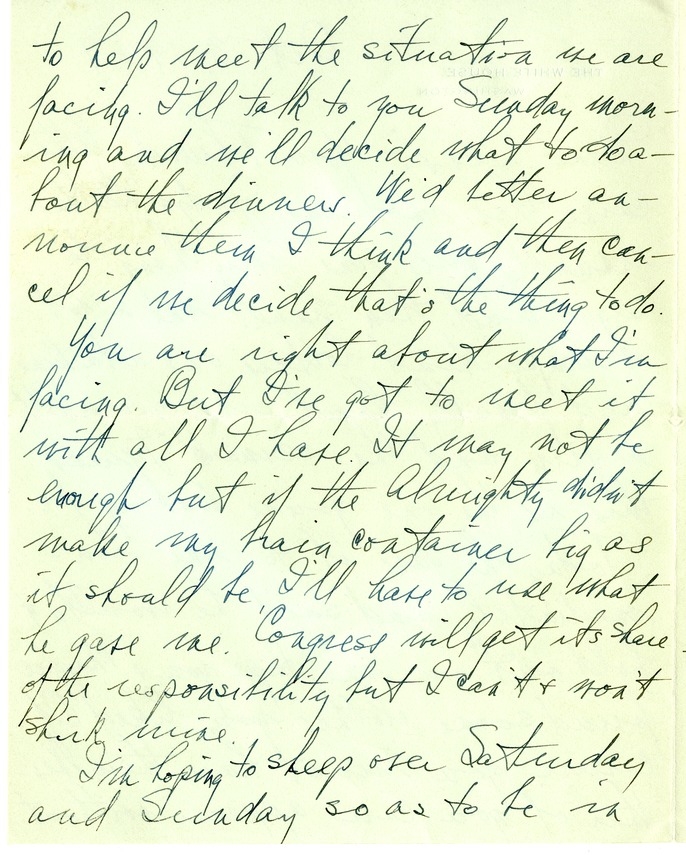 to help meet the situation we are
facing. I'll talk to you Sunday morn-
ing and we'll decide what to do a-
bout the dinners. We'd better an-
nounce them I think and then can-
cel if we decide that's the thing to do.
You are right about what I'm
facing. But I've got to meet it
with all I have. It may not be
enough but if the Almighty didn't
make my brain container big as
it should be, I'll have to use what
he gave me. Congress will get its share
of the responsibility but I can't & won't
shirk mine.
I'm hoping to sleep over Saturday
and Sunday so as to be in